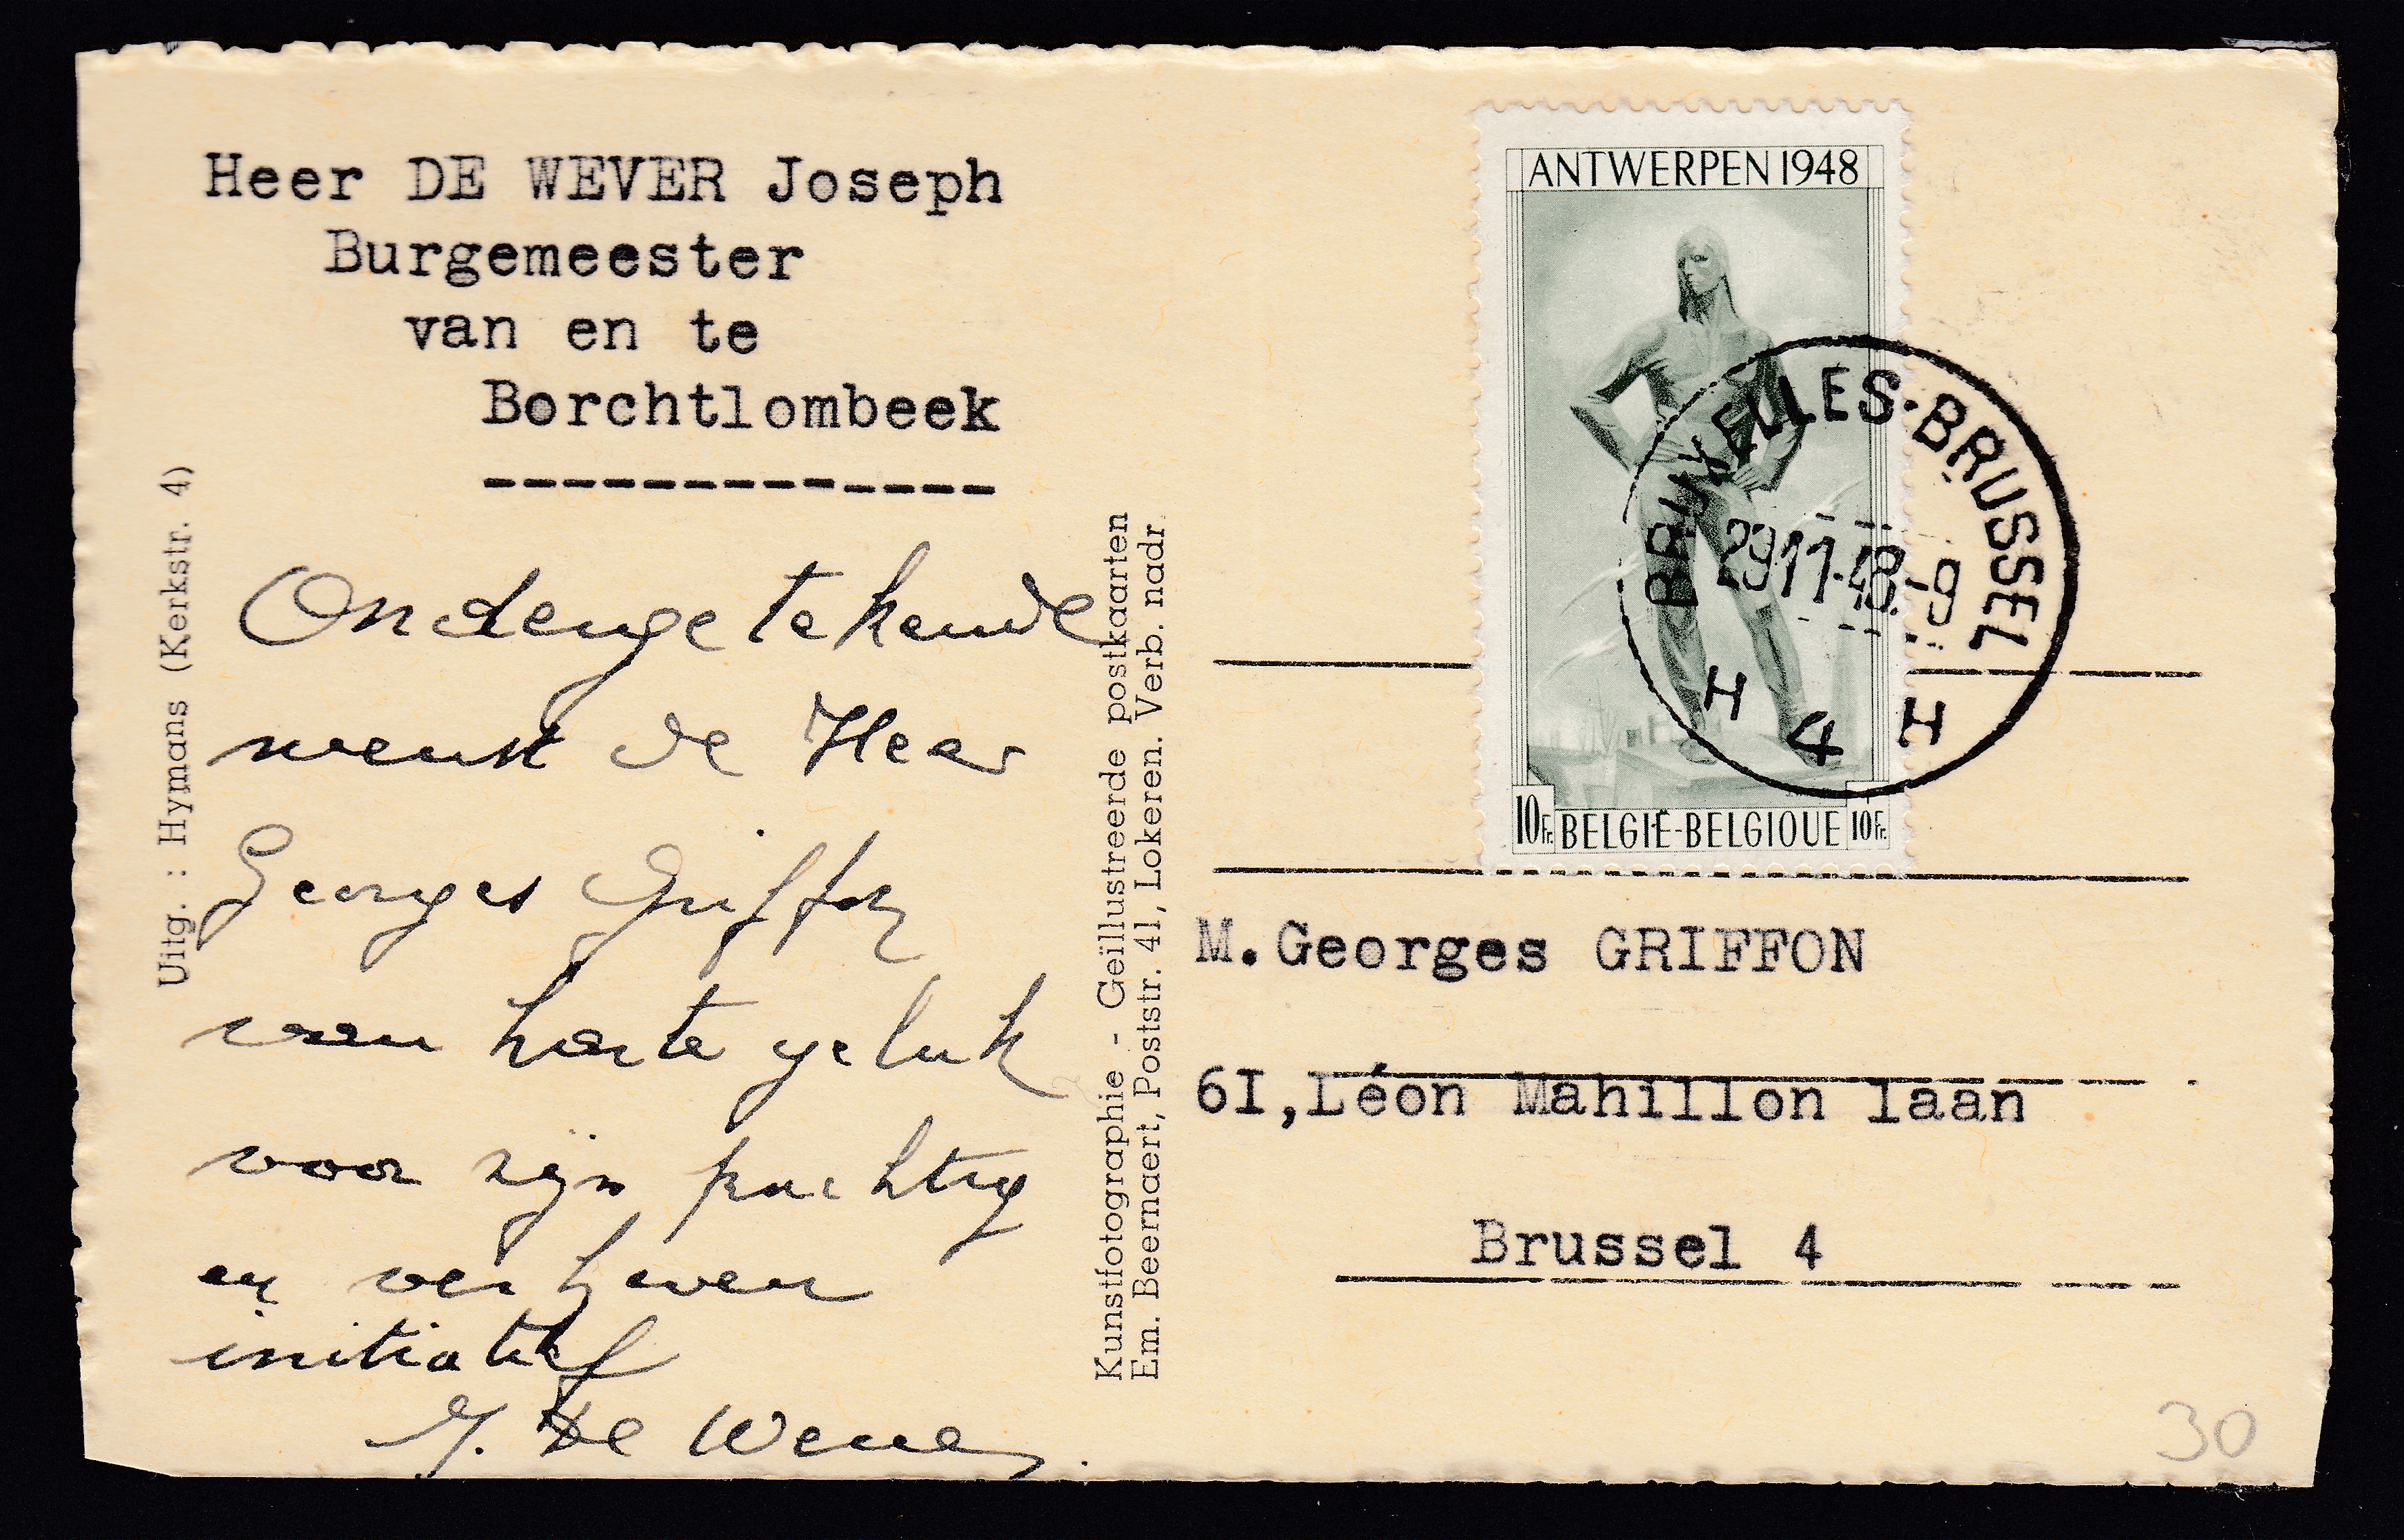 Heer DE WEVER Joseph
Burgemeester
van en te
Borchtlombeek
--------------
Ondergetekende
wenst de Heer
Georges Griffon
van harte geluk
voor zijn prachtig
en verheven
initiatief
J. De Wever.
Uitg. : Hymans (Kerkstr. 4)
Kunstfotographie - Geïllustreerde postkaarten
Em. Beernaert, Poststr. 41, Lokeren. Verb. nadr.
ANTWERPEN 1948
10Fr. BELGIË-BELGIQUE 10Fr.
BRUXELLES-BRUSSEL
29 11-48.-9
H 4 H
M.Georges GRIFFON
6I,Léon Mahillon laan
Brussel 4
30